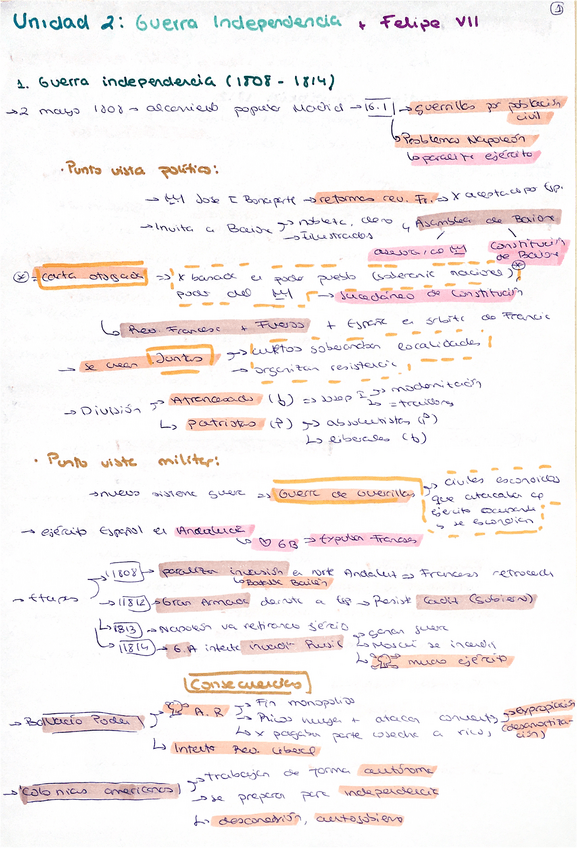 1
Unidad 2: Guerra Independencia + Felipe VII
1. Guerra independencia (1808 - 1814)
→ 2 mayo 1808 → alzamiento popular Madrid → 16.1 → guerrillas por población civil
↳ Problema Napoleón
↳ paraliza ejército
· Punto vista político:
→ José I Bonaparte → reformas rev. Fr. → X aceptado por Esp.
→ Invita a Baiona → nobleza, clero ↳ Asamblea de Baiona
→ Ilustrados
asesora, co
Constitución de Baiona
* = carta otorgada ⇒ X basada en poder pueblo (soberanía nacional),
poder del → sucedáneo de Constitución
↳ Rev. Francesa + Fueros + España en órbita de Francia
→ se crean Juntas → cuerpos soberanos localidades
→ organizan resistencia
→ División → Afrancesados (b) ⇒ José I → modernización
↳ = traidores
↳ patriotas (P) → absolutistas (P)
↳ liberales (b)
· Punto vista militar:
→ nuevo sistema guerra ⇒ Guerra de Guerrillas → civiles escondidos
que atacaban al
ejército ocupante
y se escondían
→ ejército Español en Andalucía
↳ ♡ GB ⇒ Expulsar Franceses
→ Etapas → 1808 → paraliza invasión en norte Andaluc ⇒ Franceses retroceden
↳ Batalla Bailén
→ 1812 → Gran Armada derrota a Esp → Resiste Cádiz (gobierno)
↳ 1813 → Napoleón va retirando ejército
↳ 1814 → G.A intenta invadir Rusia → ganar guerra
↳ Moscú se incendia
↳ muro ejército
Consecuencias
→ Bolivacio Poder → A.R → Fin monopolios
→ Ricos huyen + atacan conventos → Expropiación (desamortización)
↳ X pagaban parte cosecha a ricos
↳ Intento Rev. Liberal
→ Colonias americanas → trabajan de forma autónoma
→ se preparan para independencia
↳ desconexión, autogobierno